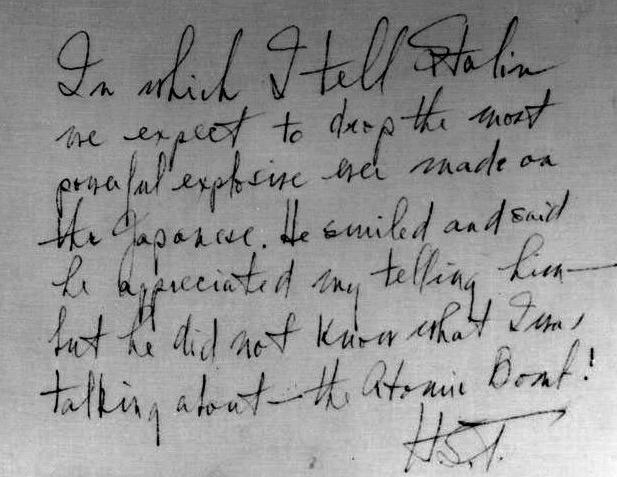 In which I tell Stalin
we expect to drop the most
powerful explosive ever made on
the Japanese. He smiled and said
he appreciated my telling him—
but he did not know what I was
talking about—the Atomic Bomb!
H.S.T.